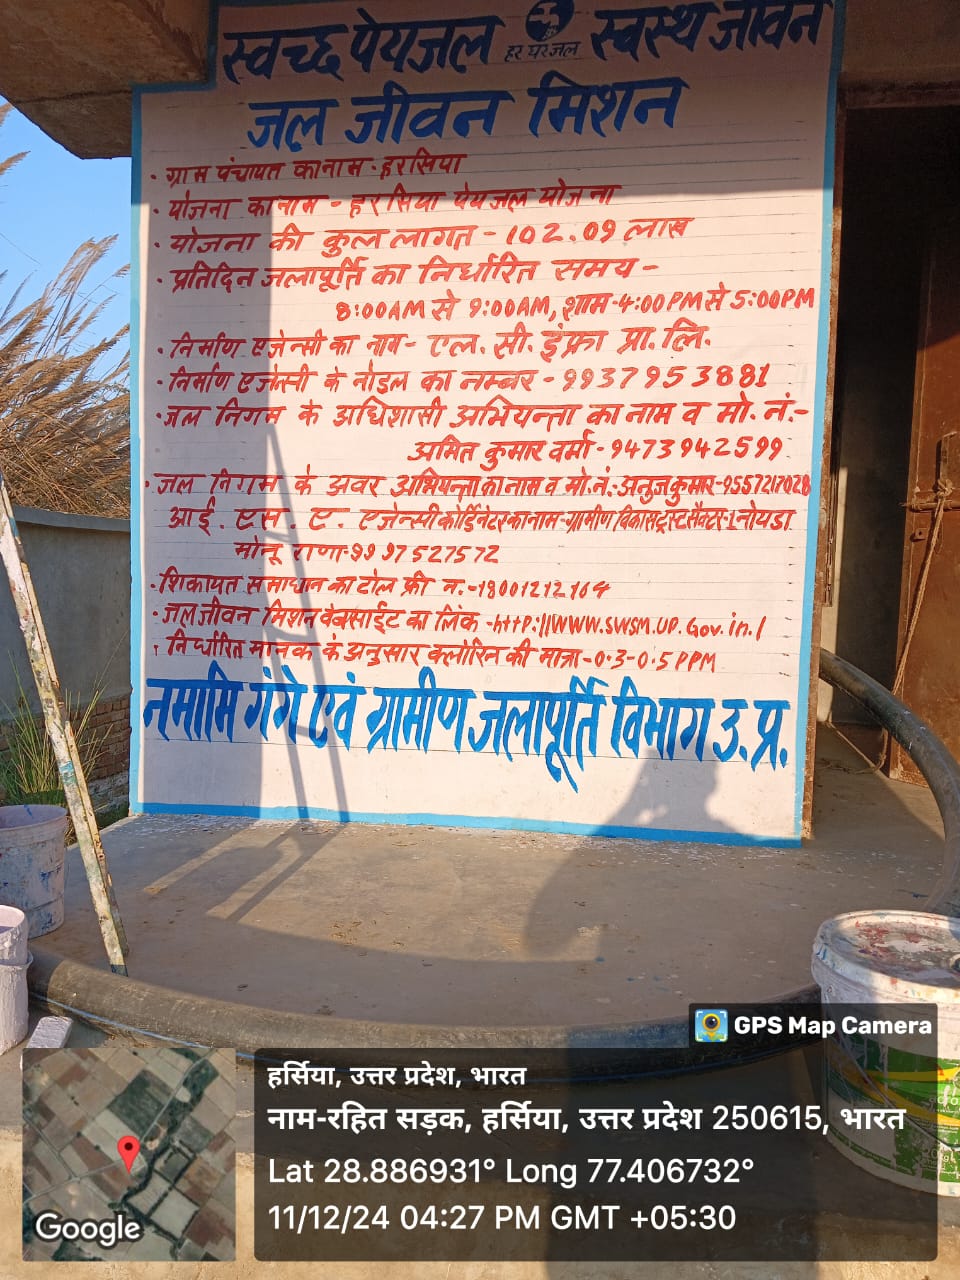 स्वच्छ पेयजल हर घर जल स्वस्थ जीवन
जल जीवन मिशन
• ग्राम पंचायत का नाम - हरसिया
• योजना का नाम - हरसिया पेयजल योजना
• योजना की कुल लागत - 102.09 लाख
• प्रतिदिन जलापूर्ति का निर्धारित समय -
8:00AM से 9:00AM, शाम-4:00PM से 5:00PM
• निर्माण एजेन्सी का नाम - एल. सी. इंफ्रा प्रा. लि.
• निर्माण एजेन्सी के नोडल का नम्बर - 9937953881
• जल निगम के अधिशासी अभियन्ता का नाम व मो. नं.-
अमित कुमार वर्मा - 9473942599
• जल निगम के अवर अभियन्ता का नाम व मो.नं.: अनुज कुमार-9557217028
आई. एस. ए. एजेन्सी कोर्डिनेटर का नाम-ग्रामीण विकास ट्रस्ट सैक्टर-1 नोयडा
मोनू राणा-9997527572
• शिकायत समाधान का टोल फ्री न.-18001212164
• जल जीवन मिशन वेबसाईट का लिंक -http://www.swsm.up.Gov.in./
• निर्धारित मानक के अनुसार क्लोरिन की मात्रा-0.3-0.5 PPM
नमामि गंगे एवं ग्रामीण जलापूर्ति विभाग उ.प्र.
GPS Map Camera
हर्सिया, उत्तर प्रदेश, भारत
नाम-रहित सड़क, हर्सिया, उत्तर प्रदेश 250615, भारत
Lat 28.886931° Long 77.406732°
11/12/24 04:27 PM GMT +05:30
Google